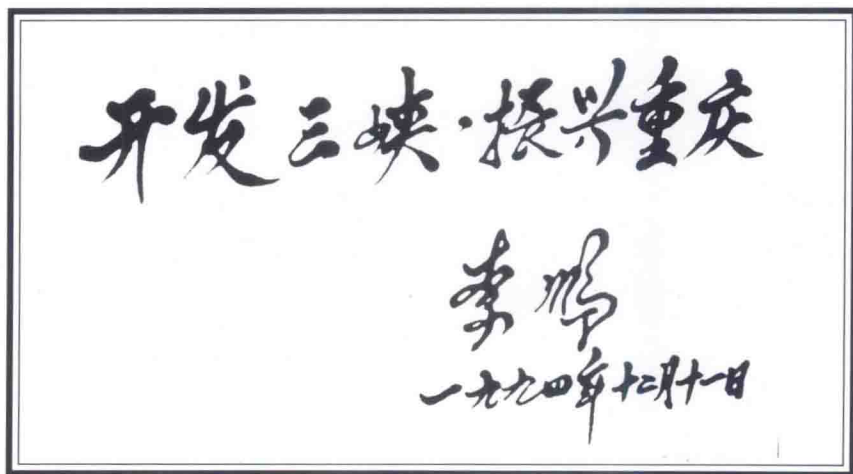 开发三峡·振兴重庆
李鹏
一九九四年十二月十一日